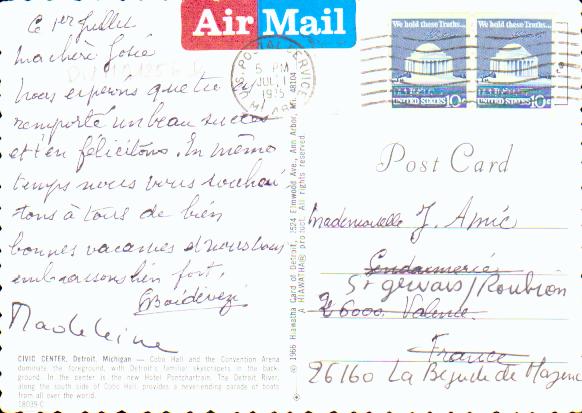 Ce 1er Juillet
ma chère Josée
Nous espérons que tu as
remporté un beau succès
et t'en félicitons. En même
temps nous vous souhai
tons à tous de bien
bonnes vacances et nous vous
embrassons bien fort,
Madeleine
CIVIC CENTER, Detroit, Michigan — Cobo Hall and the Convention Arena
dominate the foreground, with Detroit's familiar skyscrapers in the back-
ground. In the center is the new Hotel Pontchartrain. The Detroit River,
along the south side of Cobo Hall, provides a never-ending parade of boats
from all over the world.
18039-C
© 1966 Hiawatha Card of Detroit, 1524 Elmwood Ave., Ann Arbor, Mi. 48104
A HIAWATHA® product. All rights reserved.
Air Mail
U.S. POSTAL SERVICE
5 PM
JUL 1
1975
We hold these Truths...
UNITED STATES 10c
We hold these Truths...
UNITED STATES 10c
Post Card
Mademoiselle J. Amic
Gendarmerie
St gervais / Roubion
26000 Valence
France
26160 La Bégude de Mazenc